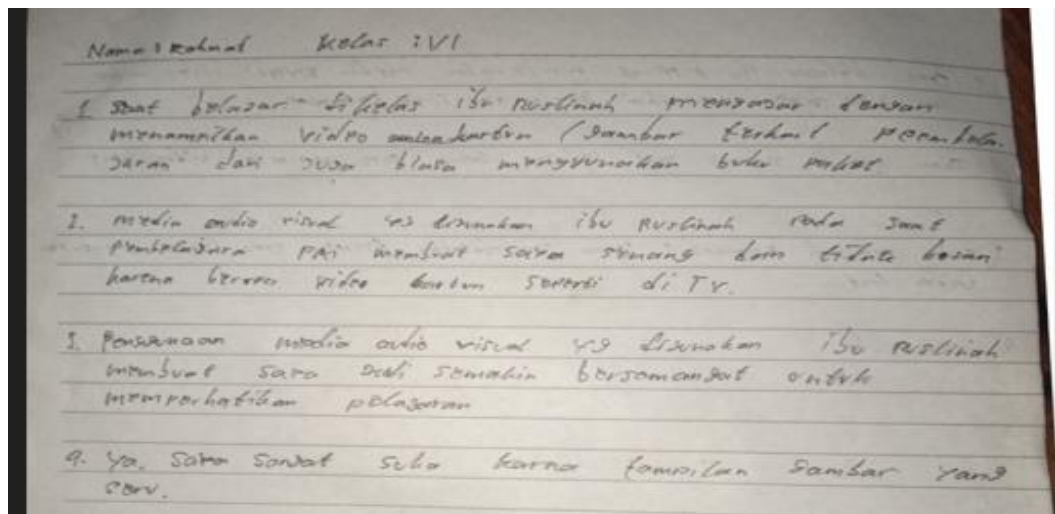 Nama : Rahmat Kelas : VI
1. Saat belajar dikelas ibu Ruslinah mengajar dengan
menampilkan video kartun / gambar terkait pembela-
jaran dan juga biasa menggunakan buku paket
2. media audio visual yg digunakan ibu Ruslinah pada saat
pembelajara PAI membuat saya senang dan tidak bosan
karena berupa video kartun seperti di TV.
3. Penggunaan media audio visual yg digunakan ibu Ruslinah
membuat saya jadi semakin bersemangat untuk
memperhatikan pelajaran
4. Ya, Saya sangat suka karna tampilan gambar yang
seru.